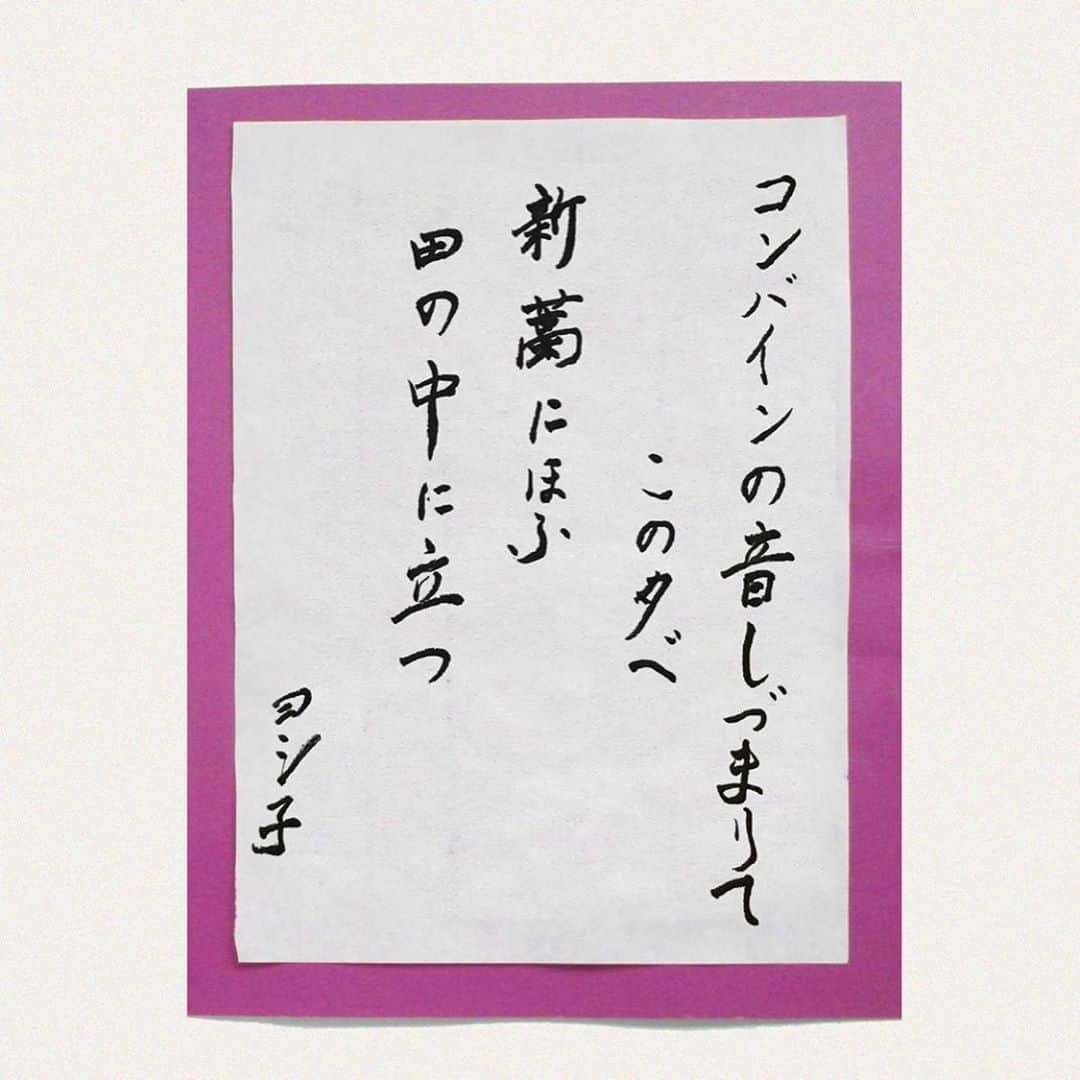 コンバインの音しづまりて
この夕べ
新藁にほふ
田の中に立つ
ヨシ子